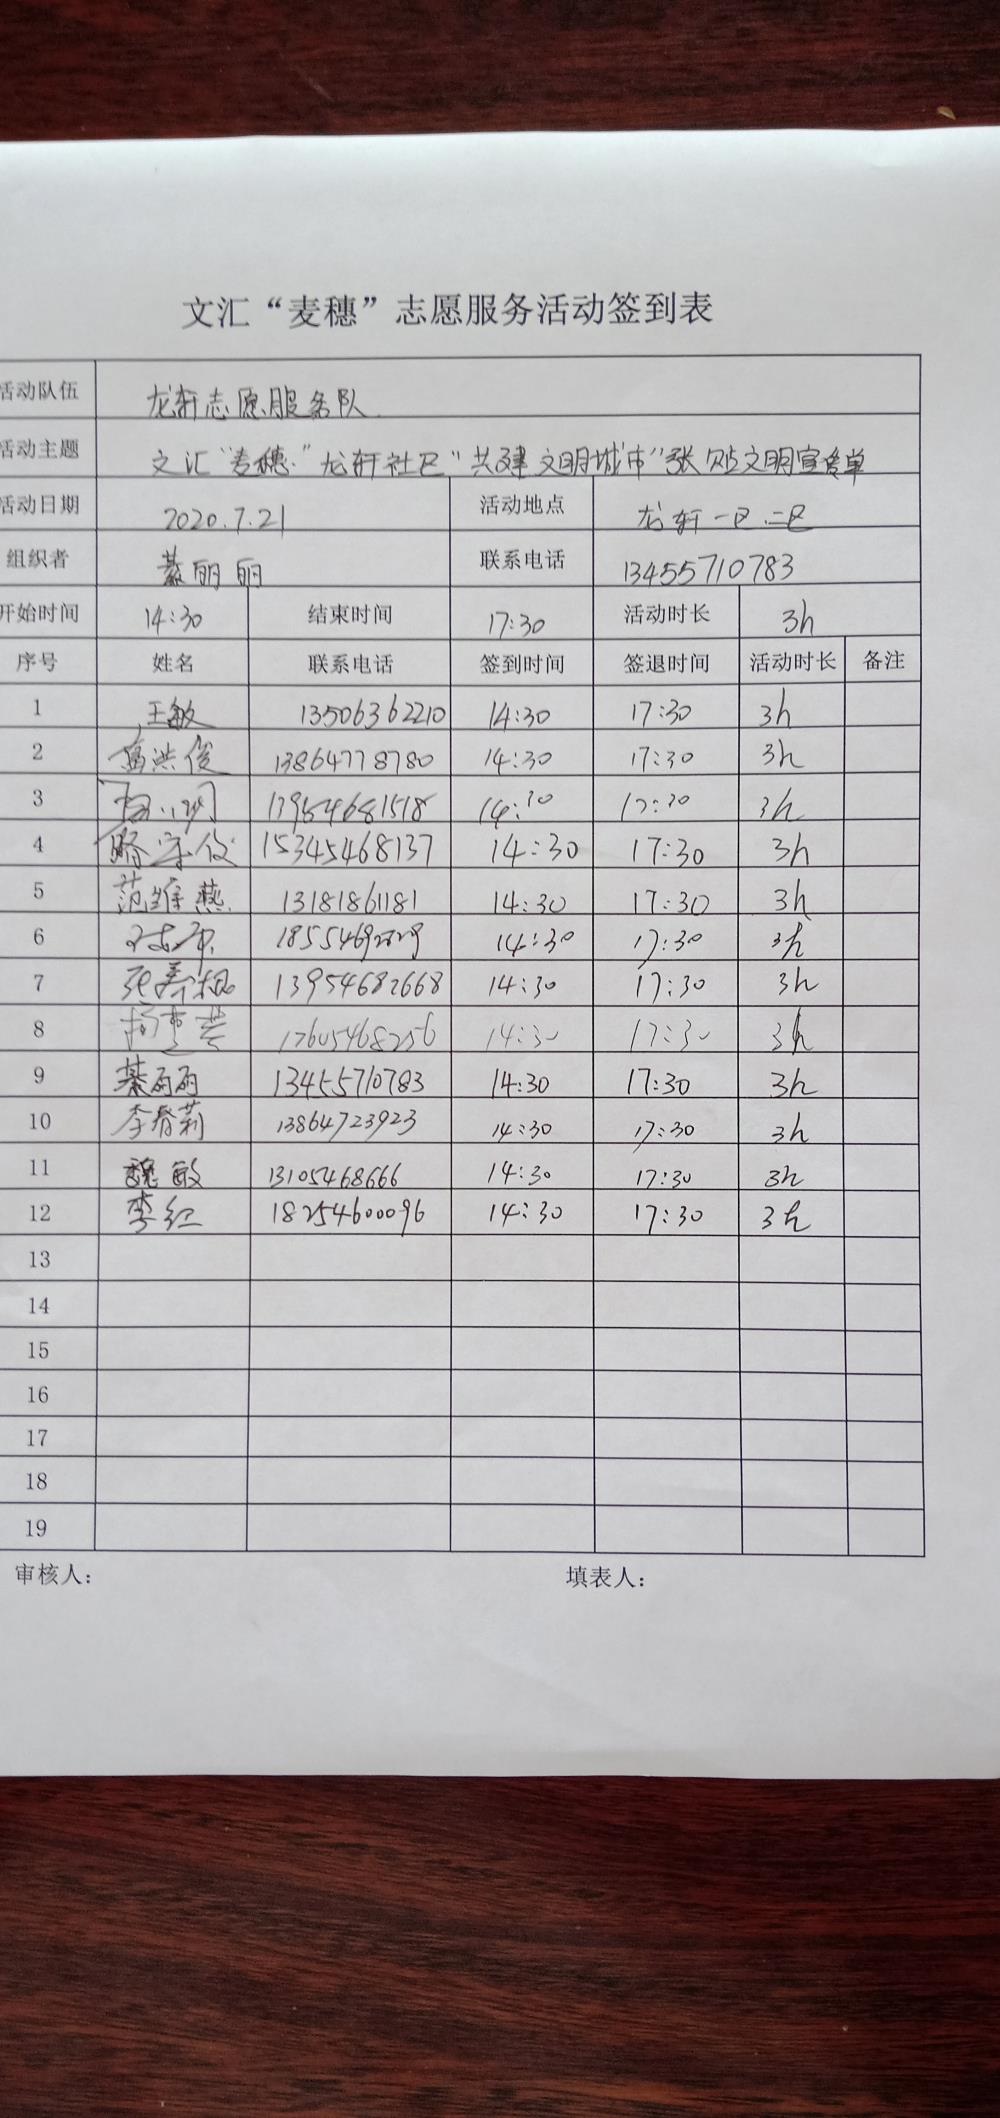 文汇“麦穗”志愿服务活动签到表
活动队伍 龙轩志愿服务队
活动主题 文汇“麦穗”龙轩社区“共建文明城市”张贴文明宣传单
活动日期 2020.7.21 活动地点 龙轩一区.二区
组织者 綦丽丽 联系电话 13455710783
开始时间 14:30 结束时间 17:30 活动时长 3h
序号 姓名 联系电话 签到时间 签退时间 活动时长 备注
1 王敏 13506362210 14:30 17:30 3h
2 洪俊 13864778780 14:30 17:30 3h
3 13954681518 14:30 17:30 3h
4 15345468137 14:30 17:30 3h
5 范维燕 13181861181 14:30 17:30 3h
6 14:30 17:30 3h
7 13954682668 14:30 17:30 3h
8 17605468256 14:30 17:30 3h
9 綦丽丽 13455710783 14:30 17:30 3h
10 李春莉 13864723923 14:30 17:30 3h
11 魏敏 13105468666 14:30 17:30 3h
12 李红 18254600096 14:30 17:30 3h
13
14
15
16
17
18
19
审核人: 填表人: